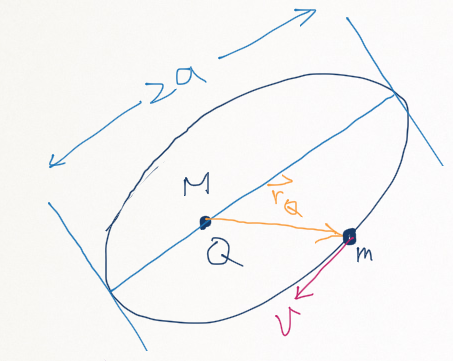 2a
M
r⃗_Q
Q
m
v